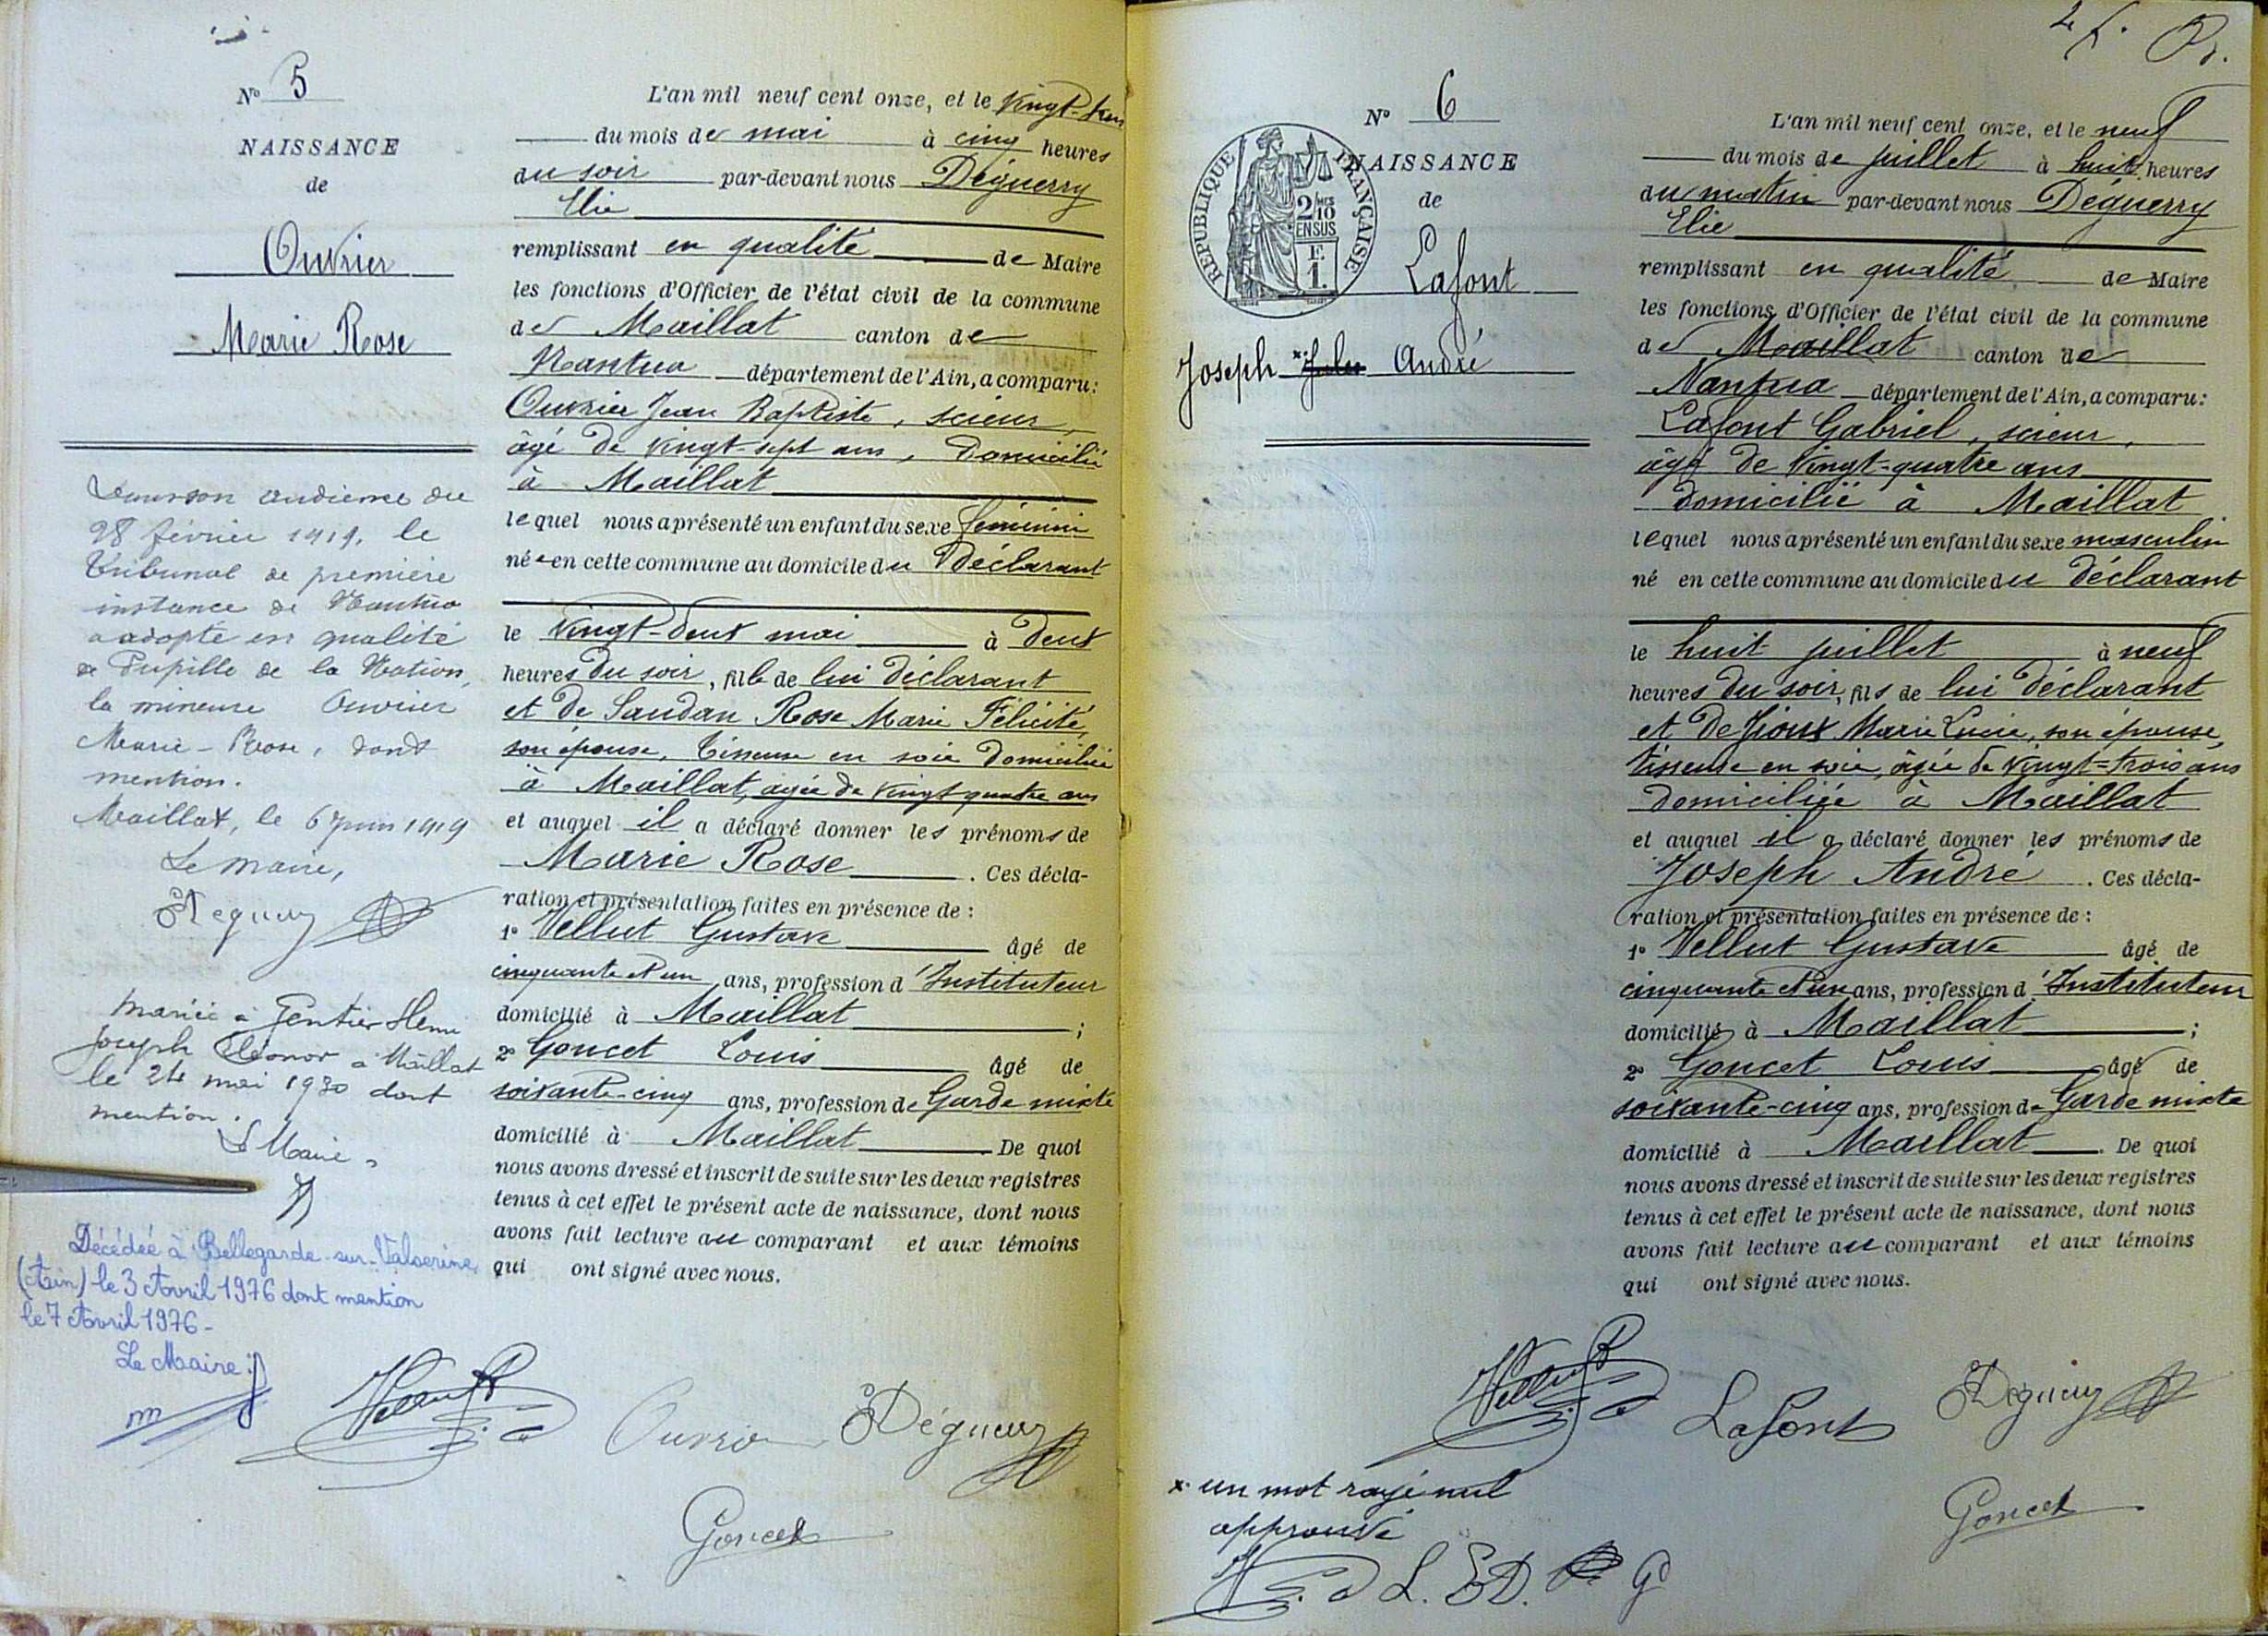 Nº 5
NAISSANCE
de
Ouvrier
Marie Rose
audience du
28 février 1919, le
Tribunal de première
instance de Nantua
a adopté en qualité
de Pupille de la Nation,
la mineure Ouvrier
Marie-Rose, dont
mention.
Maillat, le 6 juin 1919
Le maire,
EDéguerry
Mariée à Gentier Henri
Joseph à Maillat
le 24 mai 1930 dont
mention.
Le Maire
Décédée à Bellegarde-sur-Valserine
(Ain) le 3 Avril 1976 dont mention
le 7 Avril 1976 -
Le Maire :
L'an mil neuf cent onze, et le vingt-
du mois de mai à cinq heures
du soir par-devant nous Déguerry
Elie
remplissant en qualité de Maire
les fonctions d'Officier de l'état civil de la commune
de Maillat canton de
Nantua département de l'Ain, a comparu :
Ouvrier Jean Baptiste, scieur,
âgé de vingt-sept ans, domicilié
à Maillat
lequel nous a présenté un enfant du sexe féminin
née en cette commune au domicile du Déclarant
le vingt-deux mai à deux
heures du soir, fille de lui déclarant
et de Saudan Rose Marie Félicité,
son épouse, tisseuse en soie domiciliée
à Maillat, âgée de vingt quatre ans
et auquel il a déclaré donner les prénoms de
Marie Rose . Ces décla-
ration et présentation faites en présence de :
1º Vellut Gustave âgé de
cinquante et un ans, profession d'Instituteur
domicilié à Maillat ;
2º Goncet Louis âgé de
soixante-cinq ans, profession de Garde mixte
domicilié à Maillat De quoi
nous avons dressé et inscrit de suite sur les deux registres
tenus à cet effet le présent acte de naissance, dont nous
avons fait lecture au comparant et aux témoins
qui ont signé avec nous.
Vellut
Ouvrier
EDéguerry
Goncet
Nº 6
NAISSANCE
de
REPUBLIQUE FRANÇAISE
2/10
MES
EN SUS
F.
1.
Lafont
Joseph x Jules André
L'an mil neuf cent onze, et le neuf
du mois de juillet à huit heures
du matin par-devant nous Déguerry
Elie
remplissant en qualité de Maire
les fonctions d'Officier de l'état civil de la commune
de Maillat canton de
Nantua département de l'Ain, a comparu :
Lafont Gabriel, scieur,
âgé de vingt-quatre ans
domicilié à Maillat
lequel nous a présenté un enfant du sexe masculin
né en cette commune au domicile du déclarant
le huit juillet à neuf
heures du soir, fils de lui déclarant
et de Jioux Marie Lucie, son épouse,
tisseuse en soie, âgée de vingt-trois ans
domiciliée à Maillat
et auquel il a déclaré donner les prénoms de
Joseph André . Ces décla-
ration et présentation faites en présence de :
1º Vellut Gustave âgé de
cinquante et un ans, profession d'Instituteur
domicilié à Maillat ;
2º Goncet Louis âgé de
soixante-cinq ans, profession de Garde mixte
domicilié à Maillat . De quoi
nous avons dressé et inscrit de suite sur les deux registres
tenus à cet effet le présent acte de naissance, dont nous
avons fait lecture au comparant et aux témoins
qui ont signé avec nous.
Vellut
Lafont
EDéguerry
Goncet
x un mot rayé nul
approuvé
V. L. E.D. G